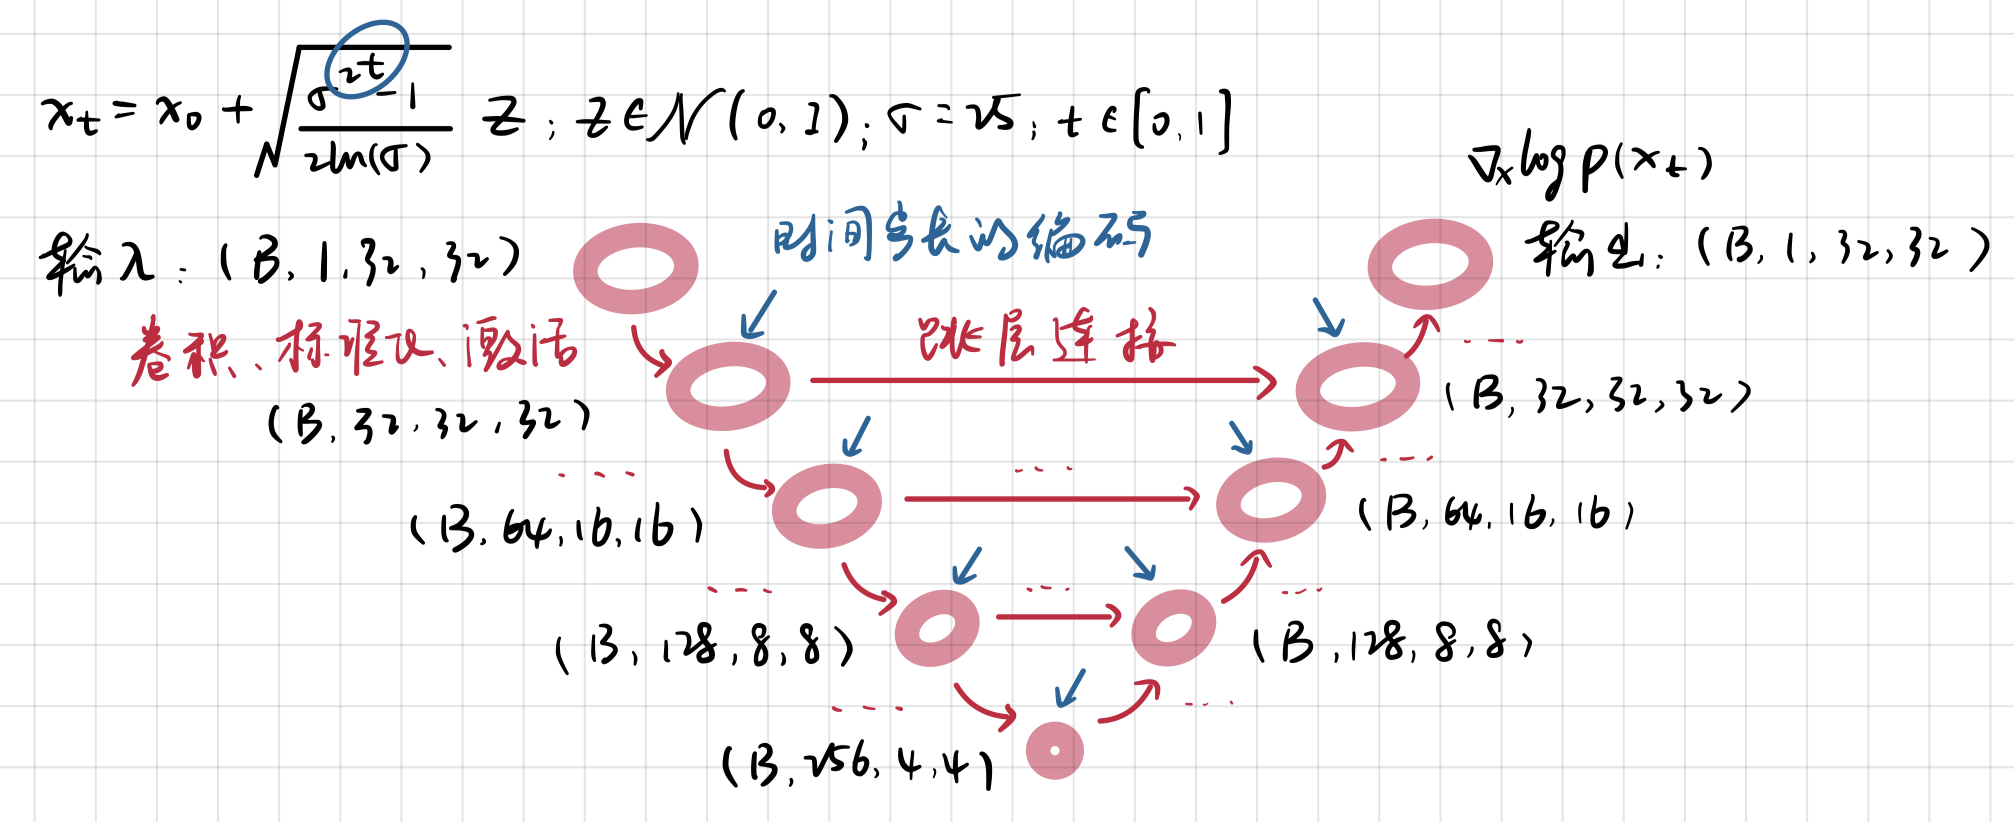 x_t = x_0 + √((σ^{2t} - 1) / (2ln(σ))) Z ; Z ∈ N(0, I) ; σ = 25 ; t ∈ [0, 1]
∇_x log p(x_t)
输入：(B, 1, 32, 32)
时间步长的编码
输出：(B, 1, 32, 32)
卷积、标准化、激活
跳层连接
(B, 32, 32, 32)
(B, 32, 32, 32)
(B, 64, 16, 16)
(B, 64, 16, 16)
(B, 128, 8, 8)
(B, 128, 8, 8)
(B, 256, 4, 4)